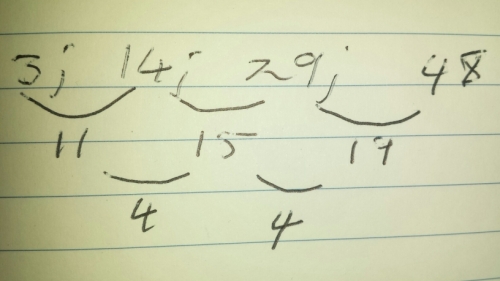 3; 14; 29; 48
11 15 19
4 4